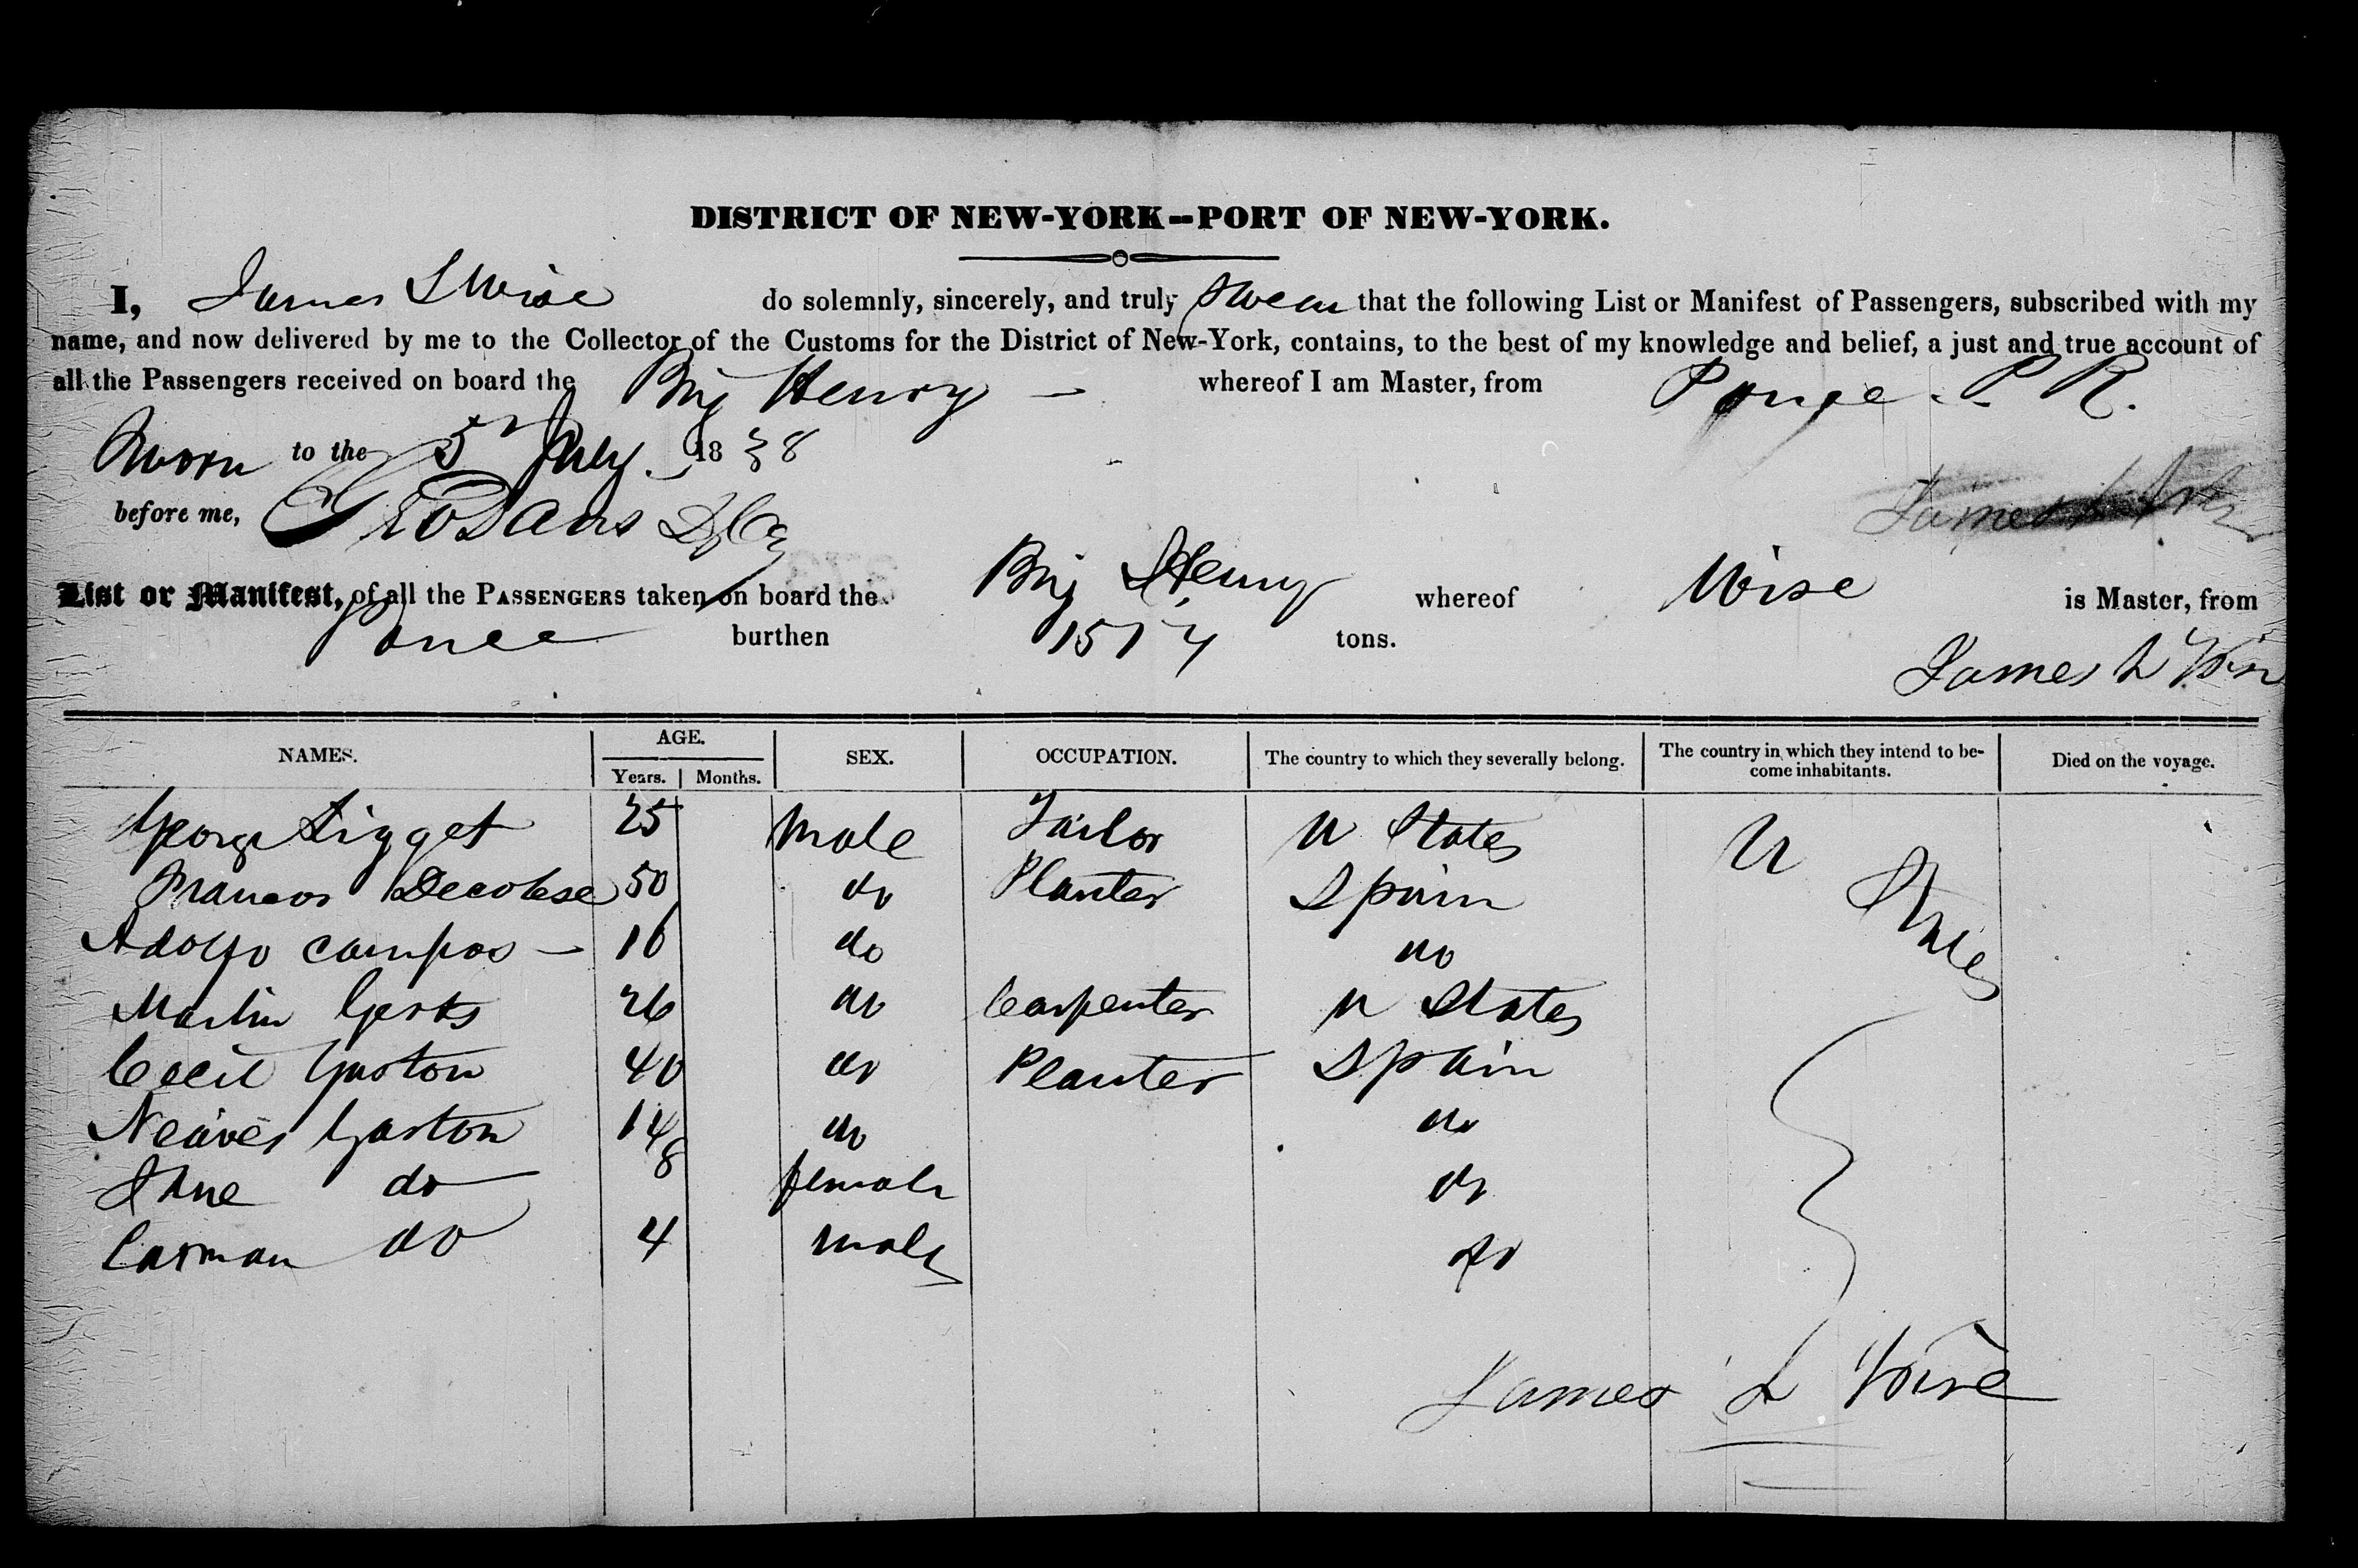 DISTRICT OF NEW-YORK--PORT OF NEW-YORK.
I, James L Wise do solemnly, sincerely, and truly swear that the following List or Manifest of Passengers, subscribed with my
name, and now delivered by me to the Collector of the Customs for the District of New-York, contains, to the best of my knowledge and belief, a just and true account of
all the Passengers received on board the Brig Henry whereof I am Master, from Ponce P. R.
Sworn to the 5th July 1838
before me,
James L
List or Manifest, of all the PASSENGERS taken on board the Brig Henry whereof Wise is Master, from
Ponce burthen tons.
James L Wise
NAMES. AGE. SEX. OCCUPATION. The country to which they severally belong. The country in which they intend to be-come inhabitants. Died on the voyage.
Years. Months.
George Ligget 25 Male Tailor U States U States
50 do Planter Spain
Adolfo Campos — 16 do do
Martin 26 do Carpenter U States
Cecil Gaston 40 do Planter Spain
Gaston 14 do do
Jane do 8 female do
Carman do 4 male do
James L Wise